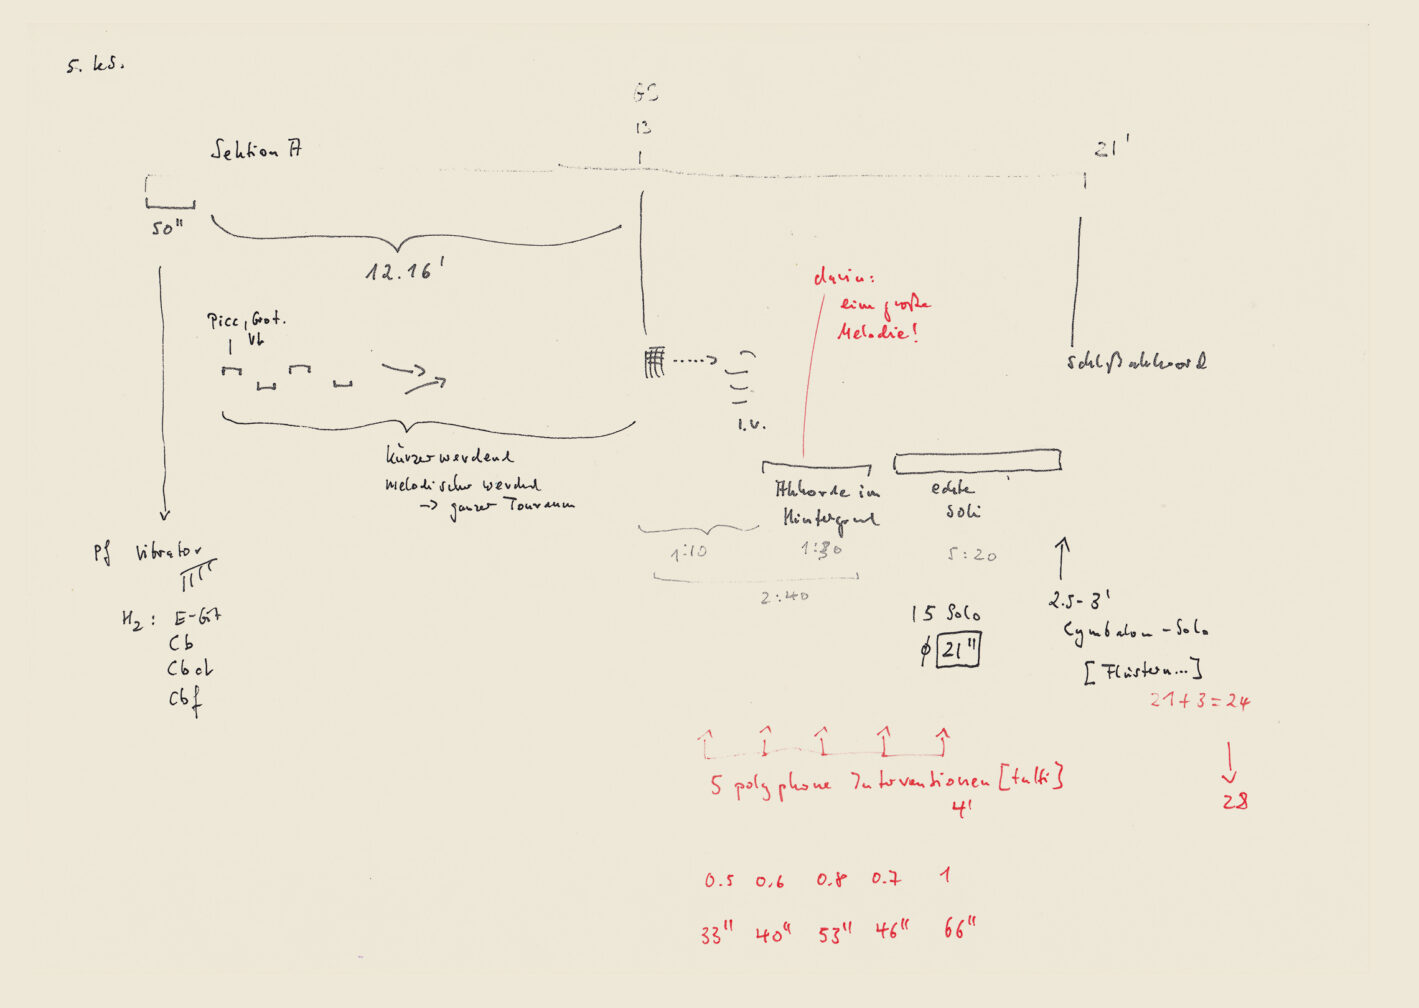 5. ks.
GS
13
Sektion A
21'
50"
12.16'
darin:
eine große
Melodie!
Picc, Grot.
Vb
Schlußakkord
l.v.
kürzer werdend
melodischer werdend
→ ganzer Tonraum
Akkorde im
Hintergrund
echte
Soli
1:10
1:30
5:20
2:40
Pf Vibrator
H2: E-Git
Cb
Cbcl
Cbf
15 Solo
ϕ 21"
2.5-3'
Cymbalom-Solo
[Flüstern...]
21+3=24
28
5 polyphone Interventionen [tutti]
4'
0.5 0.6 0.8 0.7 1
33" 40" 53" 46" 66"